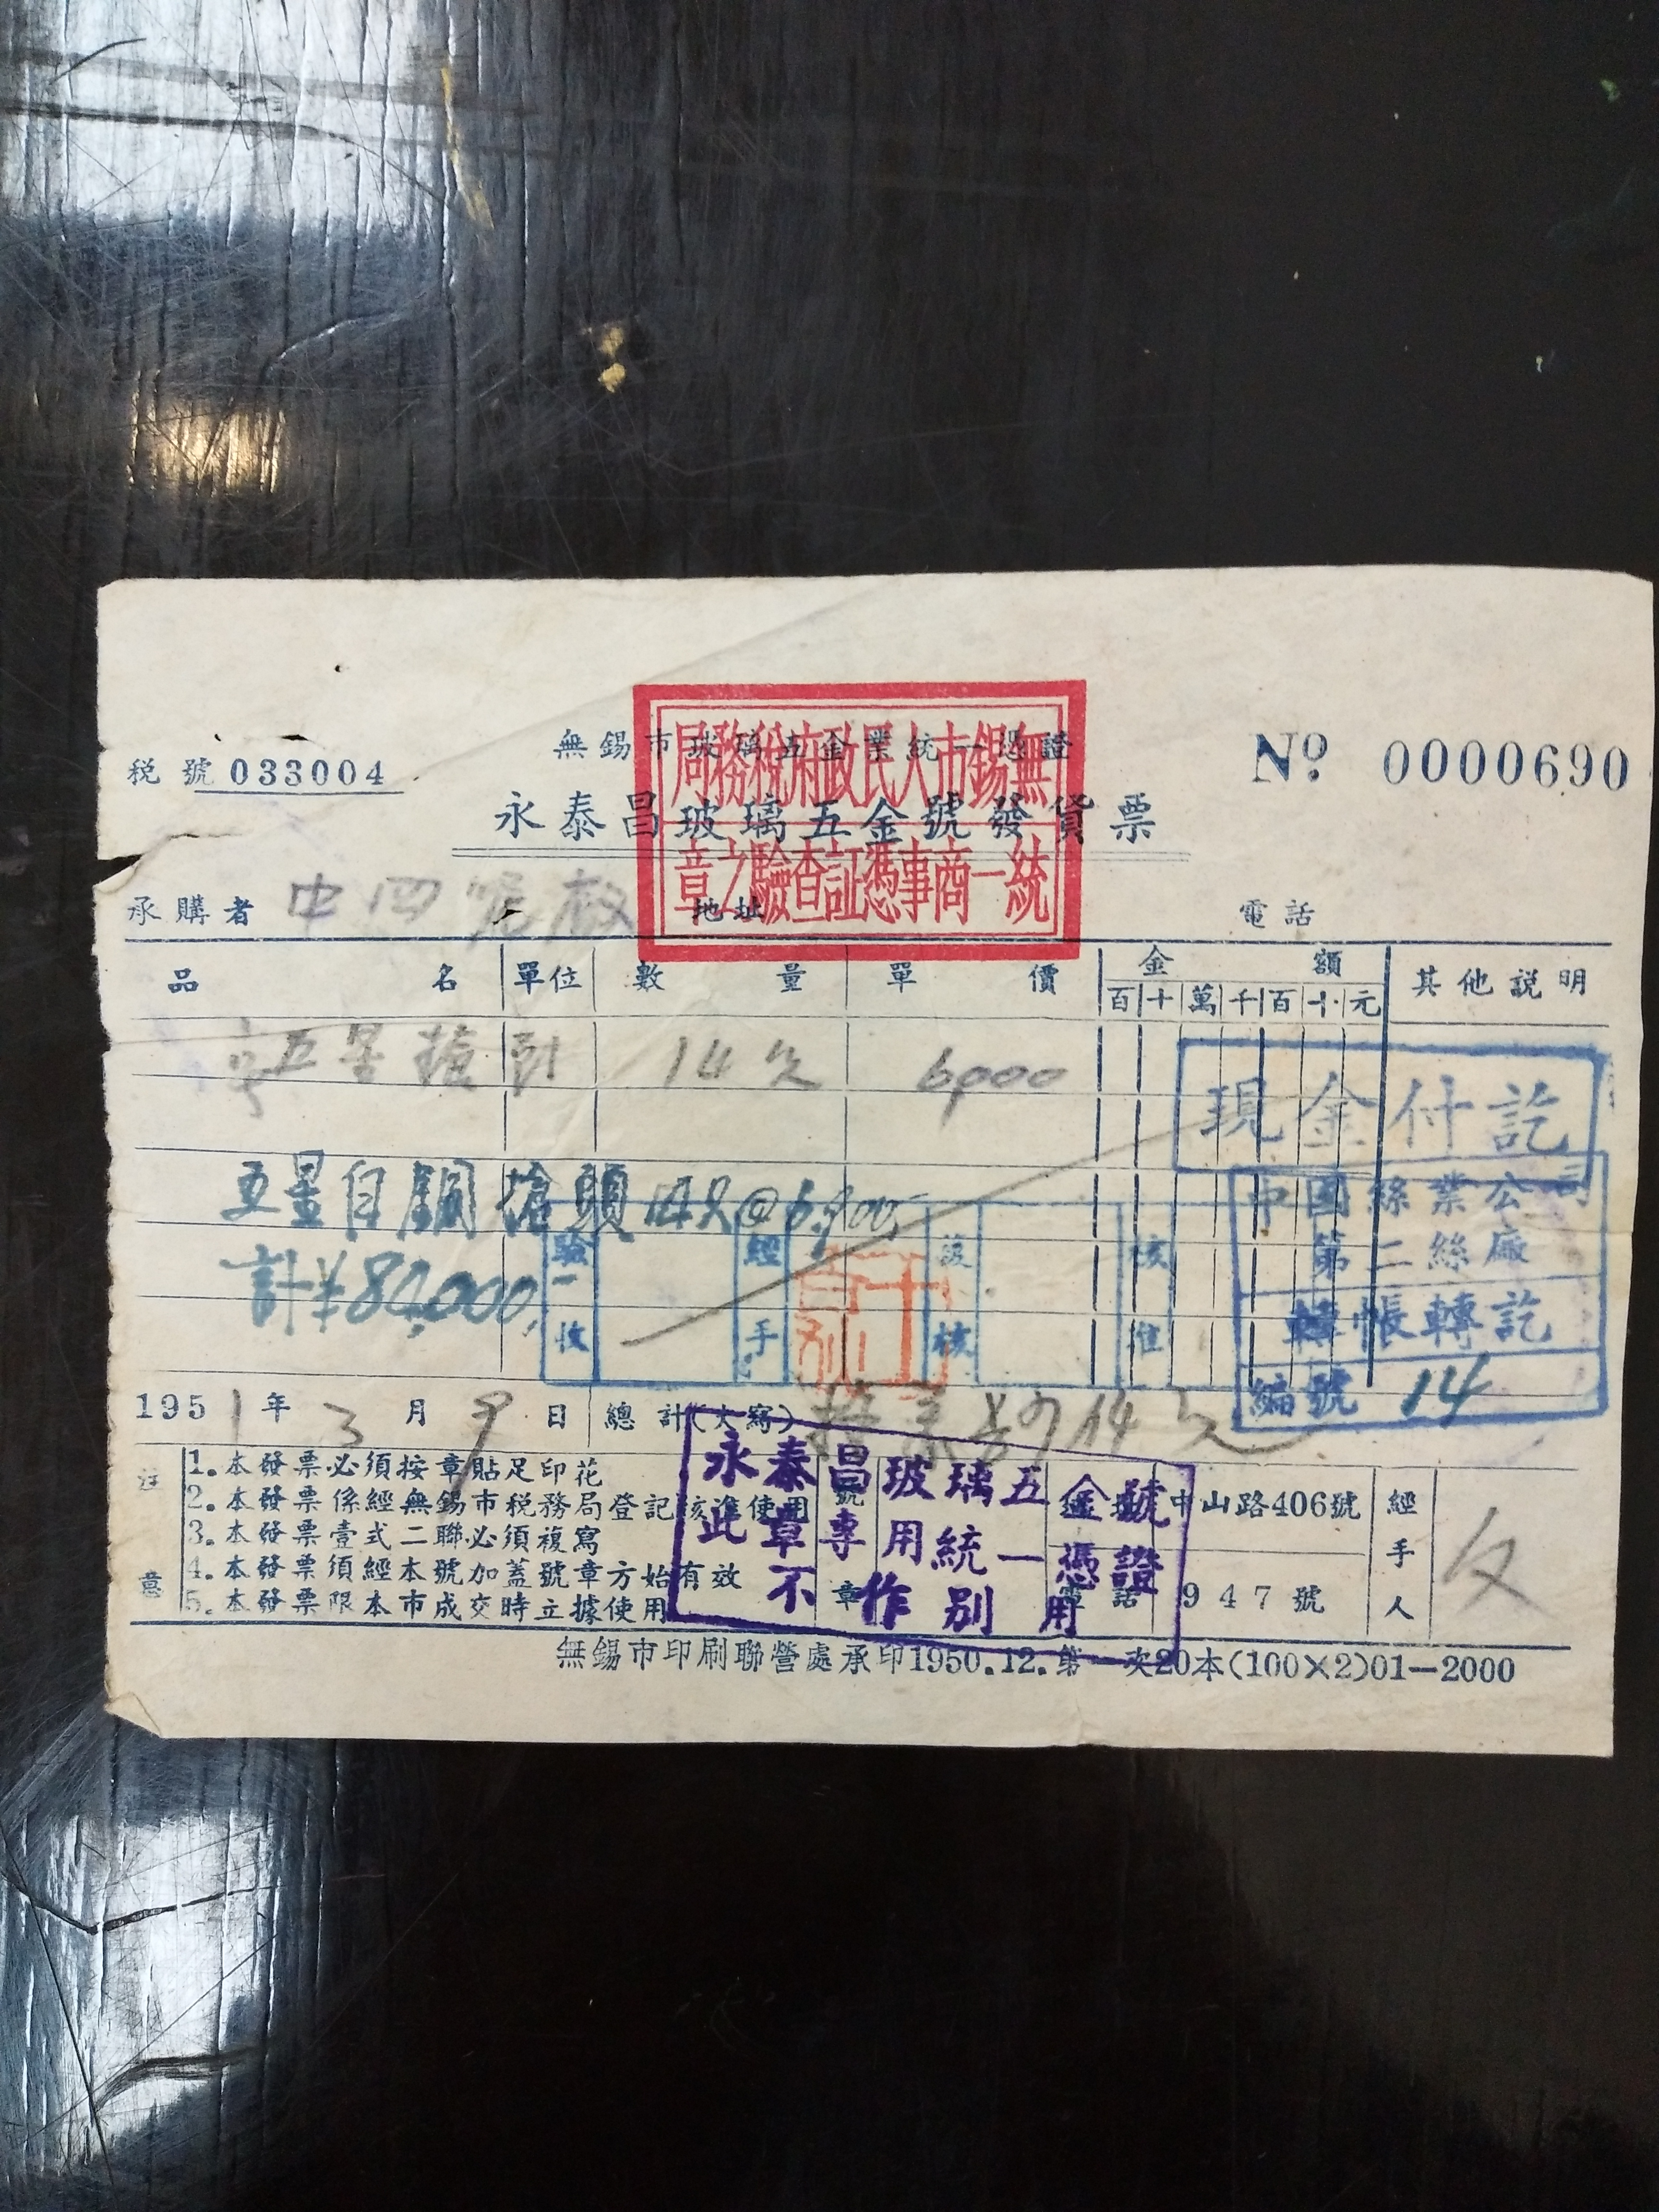 無錫市玻璃五金業統一憑證
稅號 033004
Nº 0000690
無錫市人民政府稅務局
統一商事憑証查驗之章
永泰昌玻璃五金號發貨票
承購者 中四 地址 電話
品名 單位 數量 單價 金額 其他說明
百 十 萬 千 百 十 元
五 14 6000
現金付訖
五星 頭 14只@6,000
計¥84,000
中國絲業公司
第二絲廠
轉帳轉訖
編號 14
驗收 經手 覆核 核准
1951年3月9日 總計(大寫)
注意
1. 本發票必須按章貼足印花
2. 本發票係經無錫市稅務局登記核准使用
3. 本發票壹式二聯必須複寫
4. 本發票須經本號加蓋號章方始有效
5. 本發票限本市成交時立據使用
號章
永泰昌玻璃五金號
此章專用統一憑證
不作別用
中山路406號
電話 947號
經手人
無錫市印刷聯營處承印1950.12.第一次20本(100×2)01—2000